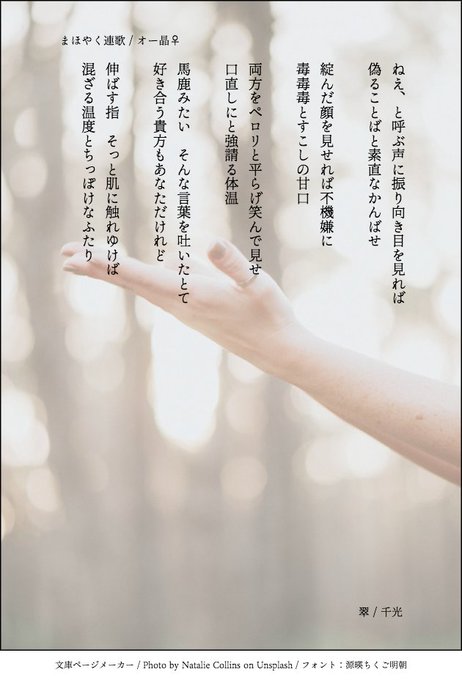 まほやく連歌 / オー晶♀
ねえ、と呼ぶ声に振り向き目を見れば
偽ることばと素直なかんばせ
綻んだ顔を見せれば不機嫌に
毒毒毒とすこしの甘口
両方をペロリと平らげ笑んで見せ
口直しにと強請る体温
馬鹿みたい　そんな言葉を吐いたとて
好き合う貴方もあなただけれど
伸ばす指　そっと肌に触れゆけば
混ざる温度とちっぽけなふたり
翠 / 千光
文庫ページメーカー / Photo by Natalie Collins on Unsplash / フォント：源暎ちくご明朝